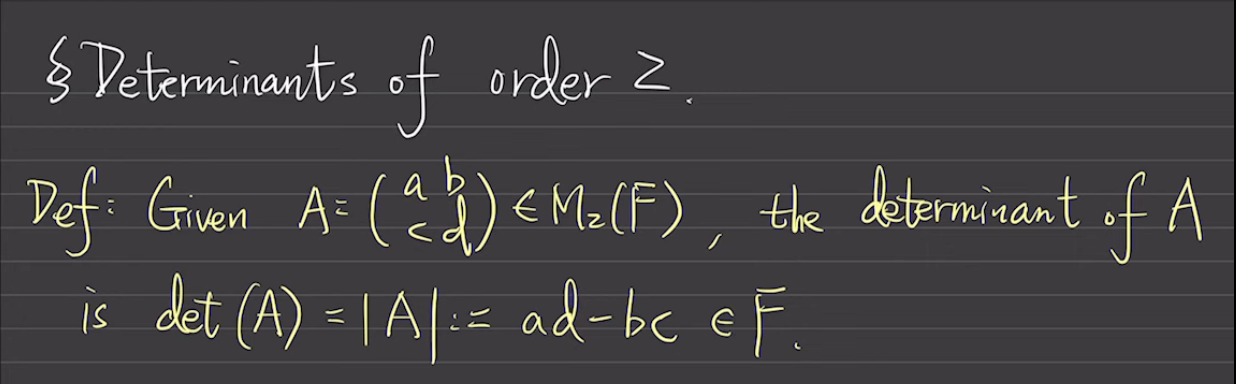 § Determinants of order 2.
Def: Given A = (a b
c d) ∈ M₂(F), the determinant of A
is det(A) = |A| := ad-bc ∈ F.